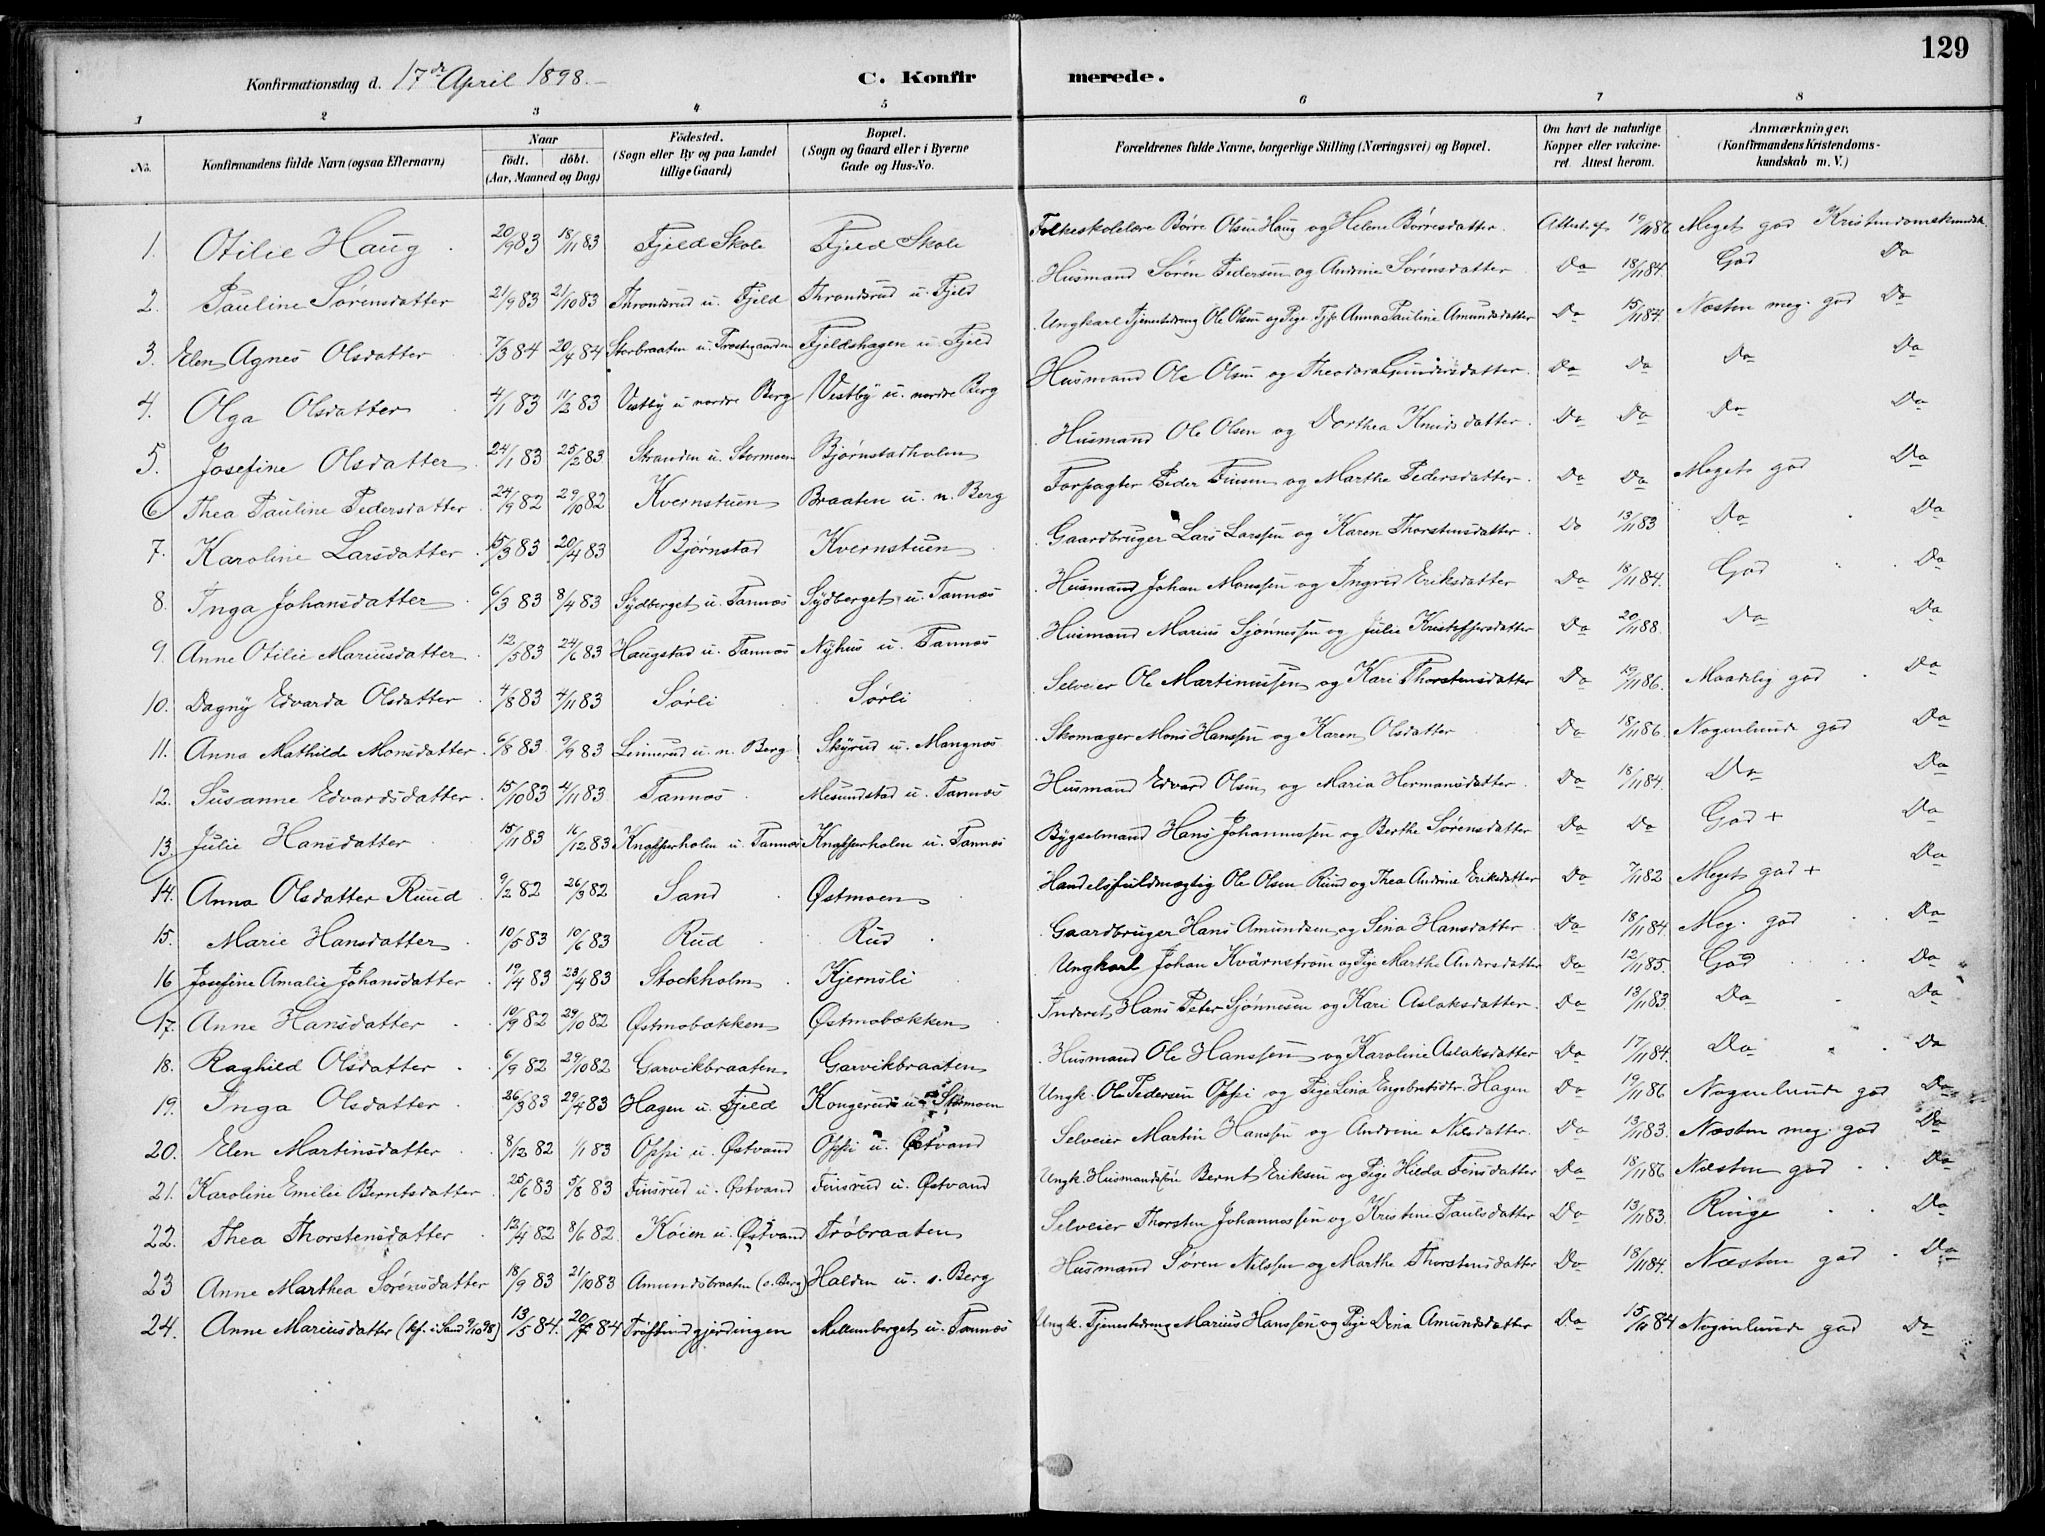 129
Konfirmationsdag d. 17de April 1898.
C. Konfirmerede.
1 2 3 4 5 6 7 8
No. Konfirmandens fulde Navn (ogsaa Efternavn) Naar födt. döbt. (Aar, Maaned og Dag) Födested. (Sogn eller By og paa Landet tillige Gaard) Bopæl. (Sogn og Gaard eller i Byerne Gade og Hus-No. Forældrenes fulde Navne, borgerlige Stilling (Næringsvei) og Bopæl. Om havt de naturlige Kopper eller vakcineret. Attest herom. Anmærkninger. (Konfirmandens Kristendomskundskab m. V.)
1. Otilie Haug 20/9 83 18/11 83 Fjeld Skole Fjeld Skole Folkeskolelære Börre Olsen Haug og Helene Börresdatter Attest af 19/11 86 Meget god Kristendomskundsk.
2. Pauline Sörensdatter 21/9 83 21/10 83 Throndsrud u. Fjeld Throndsrud u. Fjeld Husmand Sören Pedersen og Andrine Sörensdatter Do 18/11 84. God Do
3. Elen Agnes Olsdatter 7/3 84 20/4 84 Storbraaten u. Prestegaarden Fjeldshagen u. Fjeld Ungkarl Tjenestedreng Ole Olsen og Pige Anna Pauline Amundsdatter Do 15/11 84. Næsten meg. god Do
4. Olga Olsdatter 4/1 83 11/2 83 Vestby u nordre Berg Vestby u. nordre Berg Husmand Ole Olsen og Theodora Gundersdatter Do Do Do Do
5. Josefine Olsdatter 24/1 83 25/2 83 Stranden u. Stormoen Bjørnstadholen Husmand Ole Olsen og Dorthea Knudsdatter Do Do Do Do
6. Thea Pauline Pedersdatter 24/9 82 29/10 82 Kvernstuen Braaten u. n. Berg Forpagter Peder Finsen og Marthe Pedersdatter Do Do Meget god Do
7. Karoline Larsdatter 15/3 83 20/4 83 Bjørnstad Kvernstuen Gaardbruger Lars Larssen og Karen Thorstensdatter Do 13/11 83 Do Do
8. Inga Johansdatter 6/3 83 8/4 83 Sydberget u. Tannæs Sydberget u. Tannæs Husmand Johan Monssen og Ingrid Eriksdatter Do 18/11 84. God Do
9. Anne Otilie Mariusdatter 12/5 83 24/6 83 Haugstad u. Tannæs Nyhus u. Tannæs Husmand Marius Sjönnessen og Julie Kristoffersdatter Do 20/11 88. Do Do
10. Dagny Edvarda Olsdatter 4/8 83 4/11 83 Sörli Sörli Selveier Ole Martinussen og Kari Thorstensdatter Do 19/11 86. Maadelig god Do
11. Anna Mathilde Monsdatter 6/8 83 9/9 83 Linnerud u. n. Berg Skyrud u. Mangnæs Skomager Mons Hanssen og Karen Olsdatter Do 18/11 86. Nogenlunde god Do
12. Susanne Edvardsdatter 15/10 83 4/11 83 Tannæs Mesundstad u. Tannæs Husmand Edvard Olsen og Maria Hermansdatter Do 18/11 84. Do Do
13. Julie Hansdatter 15/11 83 16/12 83 Knapperholen u. Tannæs Knapperholen u. Tannæs Bygselmand Hans Johannessen og Berthe Sörensdatter Do Do God + Do
14. Anna Olsdatter Ruud 9/2 82 26/3 82 Sand Østmoen Handelsfuldmægtig Ole Olsen Ruud og Thea Andrine Eriksdatter Do 7/11 82 Meget god + Do
15. Marie Hansdatter 10/5 83 10/6 83 Rud Rud Gaardbruger Hans Amundsen og Sina Hansdatter Do 18/11 84. Meg. god Do
16 Josefine Amalie Johansdatter 19/4 83 23/4 83 Stockholm Kjernsli Ungkarl Johan Kvärnström og Pige Marthe Andersdatter Do 12/11 85. God Do
17. Anne Hansdatter 10/9 82 29/10 82 Østmobækken Østmobækken Inderst Hans Peter Sjönnesen og Kari Aslaksdatter Do 13/11 83. Do Do
18. Raghild Olsdatter 6/9 82 29/10 82 Garvikbraaten Garvikbraaten Husmand Ole Hanssen og Karoline Aslaksdatter Do 17/11 84. Do Do
19. Inga Olsdatter 26/3 83 29/4 83 Hagen u. Fjeld Kongerud u. Stormoen Ungk. Ole Pedersen Oppi og Pige Lina Engebretsdtr. Hagen Do 19/11 86 Nogenlunde god Do
20. Elen Martinsdatter 8/12 82 1/1 83 Oppi u. Østvand Oppi u. Østvand Selveier Martin Hanssen og Andrine Nilsdatter Do 13/11 83. Næsten meg. god Do
21. Karoline Emilie Berntsdatter 25/6 83 5/8 83 Finsrud u. Østvand Finsrud u. Østvand Ungk. Husmandssön Bernt Eriksen og Pige Hilda Finsdatter Do 18/11 86 Næsten god Do
22. Thea Thorstensdatter 12/4 82 8/6 82. Köien u. Østvand Tröbraaten Selveier Thorsten Johannessen og Kristine Paulsdatter Do 13/11 83. Ringe Do
23 Anne Marthea Sörensdatter 18/9 83 21/10 83 Amundsbraaten (s. Berg) Halden u. s. Berg Husmand Sören Nilssen og Marthe Thorstensdatter Do 18/11 84. Næsten god Do
24. Anne Mariusdatter (kf. i Sand 9/10 98) 13/5 84. 20/7 84 Mellemberget u. Tannæs Ungk. Tjenestedreng Marius Hanssen og Pige Dina Amundsdatter Do 15/11 84 Nogenlunde god Do